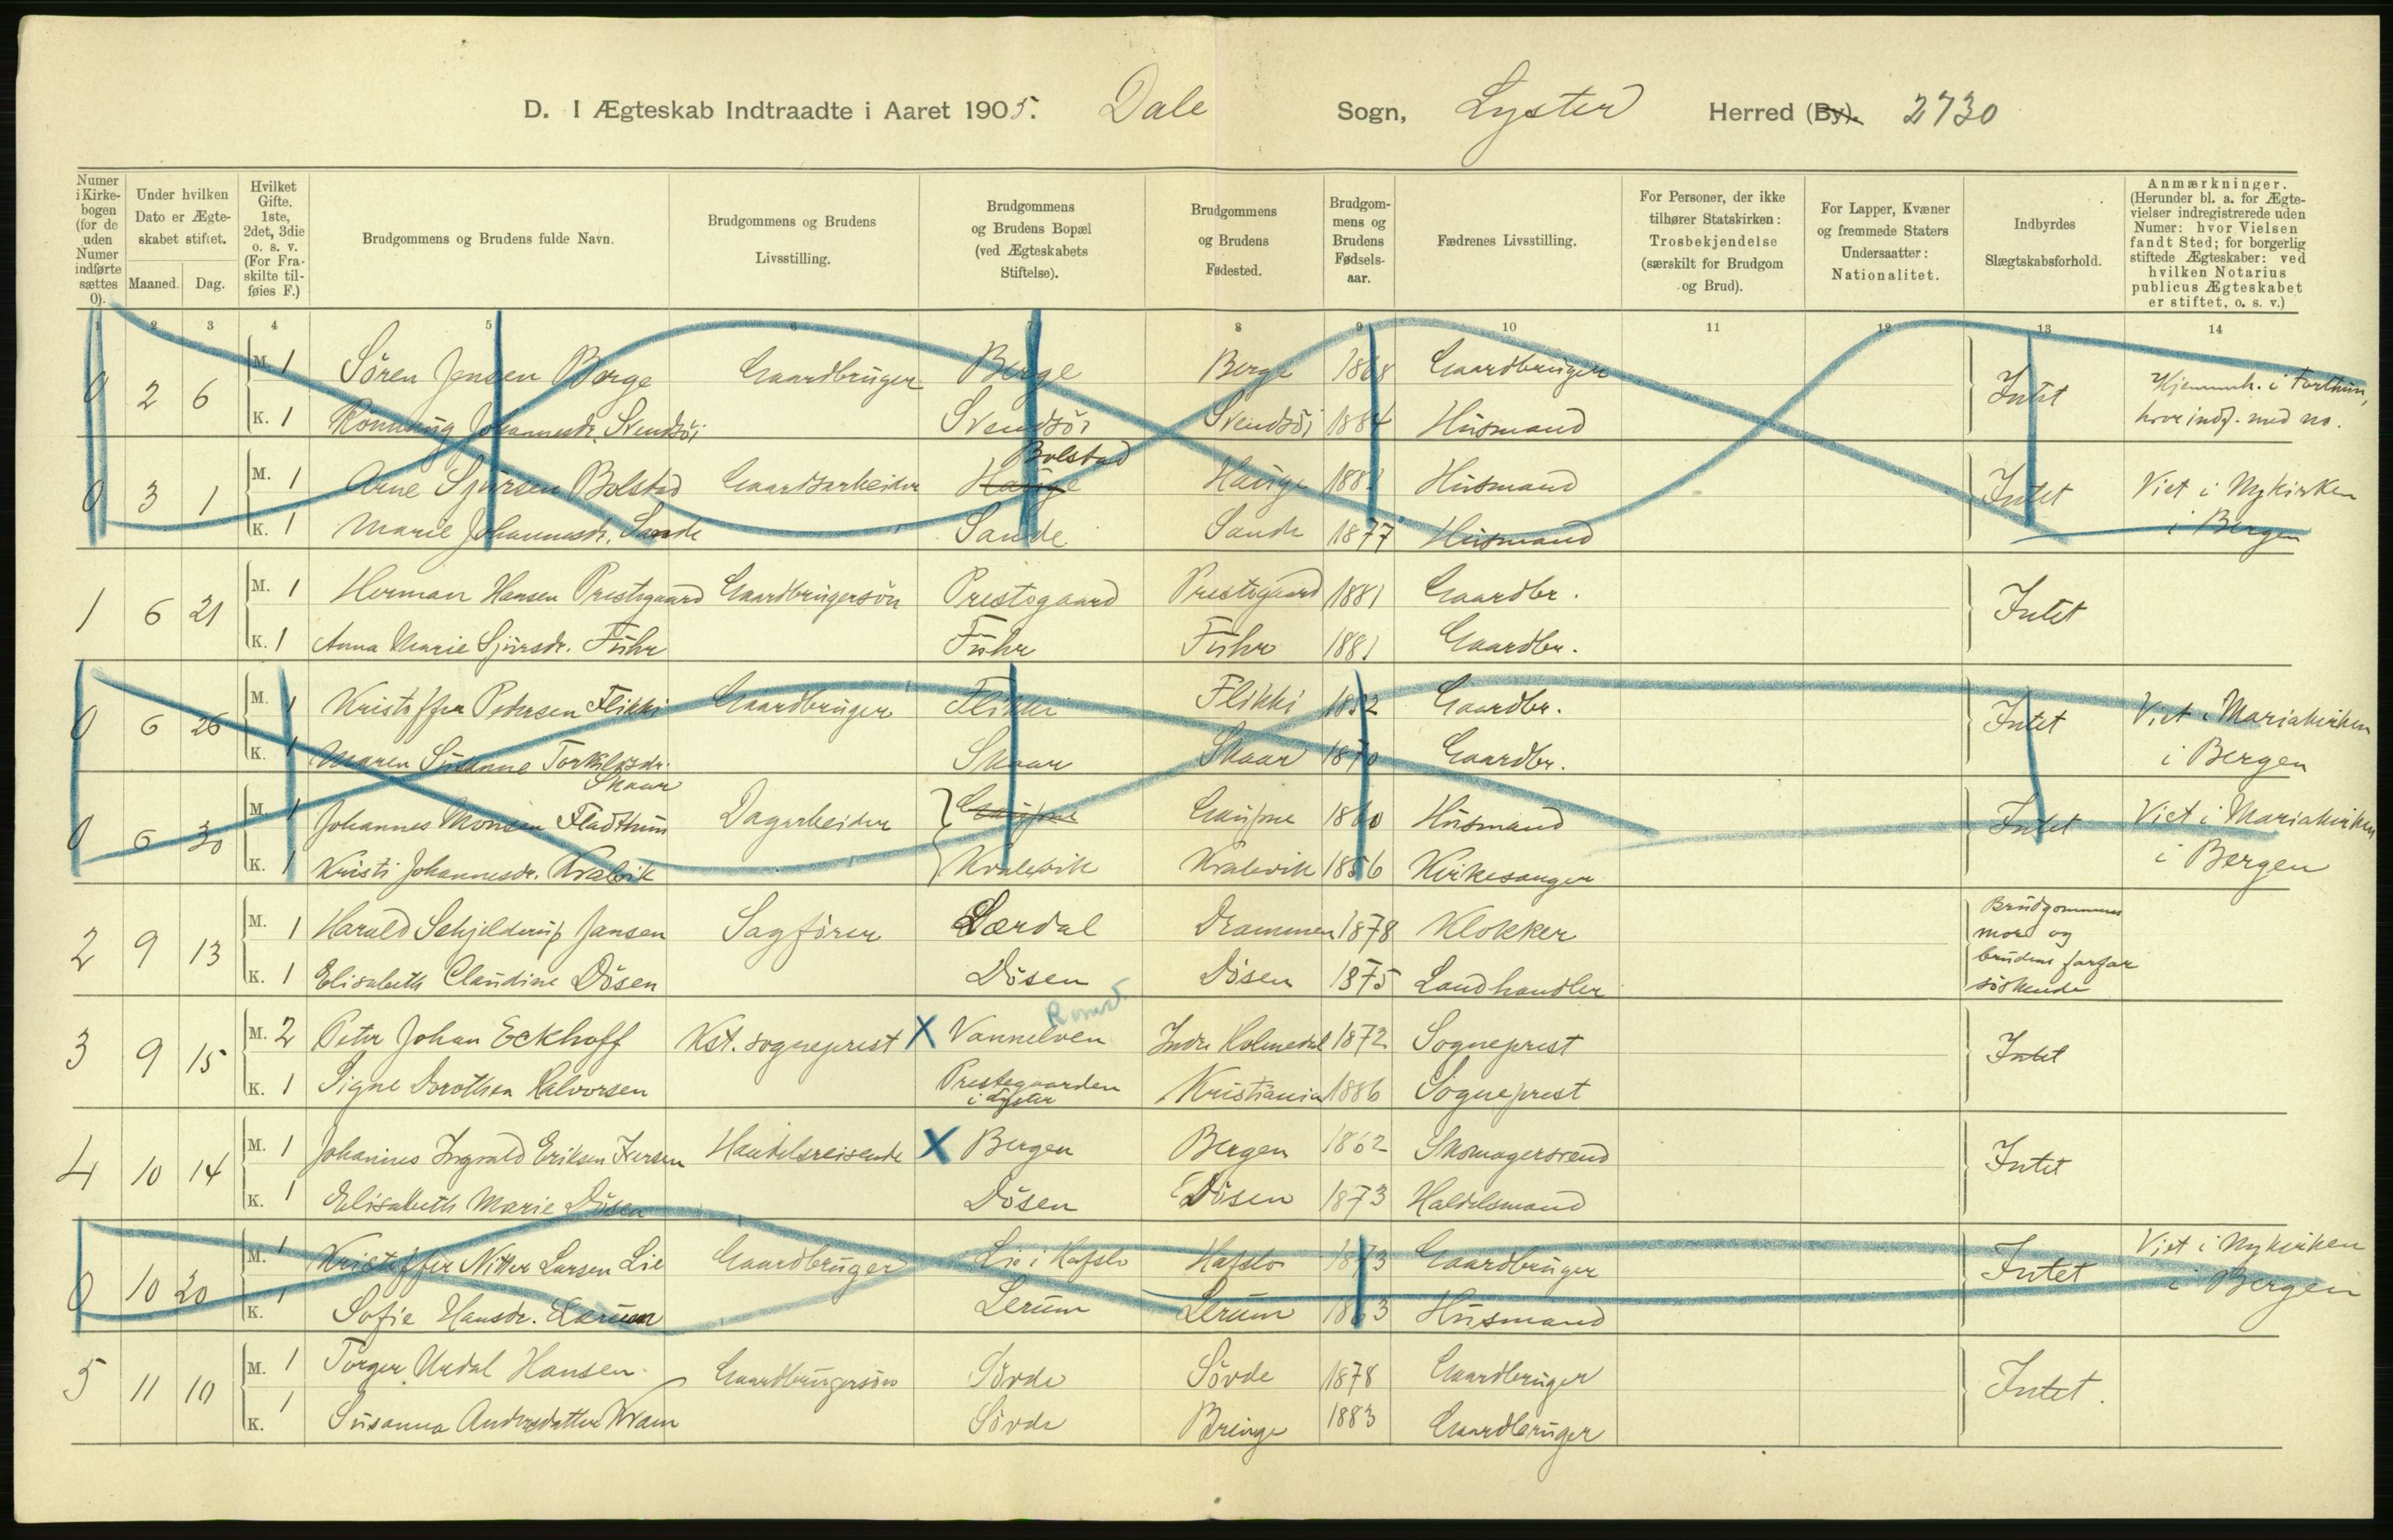 D. I Ægteskab Indtraadte i Aaret 1905. Dale Sogn, Lyster Herred (By). 2730
Numer i Kirkebogen (for de uden Numer indførte sættes 0).
Under hvilken Dato er Ægteskabet stiftet.
Maaned. Dag.
Hvilket Gifte. 1ste, 2det, 3die o. s. v. (For Fraskilte tilføies F.)
Brudgommens og Brudens fulde Navn.
Brudgommens og Brudens Livsstilling.
Brudgommens og Brudens Bopæl (ved Ægteskabets Stiftelse).
Brudgommens og Brudens Fødested.
Brudgommens og Brudens Fødselsaar.
Fædrenes Livsstilling.
For Personer, der ikke tilhører Statskirken: Trosbekjendelse (særskilt for Brudgom og Brud).
For Lapper, Kvæner og fremmede Staters Undersaatter: Nationalitet.
Indbyrdes Slægtskabsforhold.
Anmærkninger. (Herunder bl. a. for Ægtevielser indregistrerede uden Numer: hvor Vielsen fandt Sted; for borgerlig stiftede Ægteskaber: ved hvilken Notarius publicus Ægteskabet er stiftet, o. s. v.)
1 2 3 4 5 6 7 8 9 10 11 12 13 14
0 2 6 M. 1 Sören Jensen Berge Gaardbruger Berge Berge 1868 Gaardbruger Intet Hjemmeh. i Forthun,
K. 1 Rönnaug Johannesdr. Svendsöi Svendsöi Svendsöi 1884 Husmand hvor indf. med no.
0 3 1 M. 1 Arne Sjursen Bolstad Gaardsarbeider Hauge Bolstad Hauge 1881 Husmand Intet Viet i Nykirken
K. 1 Marie Johannesdr. Sande Sande Sande 1877 Husmand i Bergen
1 6 21 M. 1 Herman Hansen Prestegaard Gaardbrugersön Prestegaard Prestegaard 1881 Gaardbr. Intet
K. 1 Anna Marie Sjursdr. Fuhr Fuhr Fuhr 1881 Gaardbr.
0 6 26 M. 1 Kristoffer Pedersen Flikki Gaardbruger Flikki Flikki 1852 Gaardbr. Intet Viet i Mariakirken
K. 1 Maren Susanne Torkilsdr. Skaar Skaar Skaar 1870 Gaardbr. i Bergen
0 6 30 M. 1 Johannes Monsen Fladthun Dagarbeider Gaupne Gaupne 1860 Husmand Intet Viet i Mariakirken
K. 1 Kristi Johannesdr. Kvalvik Kvalevik Kvalevik 1856 Kirkesanger i Bergen
2 9 13 M. 1 Harald Schjelderup Jansen Sagförer Lærdal Drammen 1878 Klokker Brudgommens mor og brudens farfar söskende
K. 1 Elisabeth Claudine Dösen Dösen Dösen 1875 Landhandler
3 9 15 M. 2 Peter Johan Eckhoff Kst. sogneprest X Vannelven Indre Holmedal 1872 Sogneprest Intet
K. 1 Signe Dorothea Halvorsen Prestegaarden i Lyster Kristiania 1886 Sogneprest
4 10 14 M. 1 Johannes Ingvald Eriksen Iversen Handelsreisende X Bergen Bergen 1862 Skomagersvend Intet
K. 1 Elisabeth Marie Dösen Dösen Dösen 1873 Handelsmand
0 10 20 M. 1 Kristoffer Nitter Larsen Lie Gaardbruger Lie i Hafslo Hafslo 1873 Gaardbruger Intet Viet i Nykirken
K. 1 Sofie Hansdr. Lerum Lerum Lerum 1863 Husmand i Bergen
5 11 10 M. 1 Torger Urdal Hansen Gaardbrugersön Sörde Sörde 1878 Gaardbruger Intet.
K. 1 Susanna Andersdatter Kvam Sörde Bringe 1883 Gaardbruger